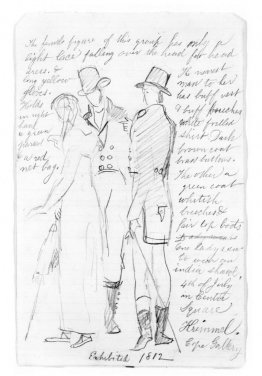 The female figure of this group has only a
light lace falling over the head for head
dress. &
long yellow
gloves.
Holds
in right
hand
a green
parasol
& a red
net bag.
The nearest
man to her
has buff vest
& buff breeches
white frilled
shirt Dark
brown coat
brass buttons.
The other a
green coat
whitish
breeches &
fair top boots
One lady seen
to wear an
india shawl,
4th of July
in Centre
Square
Krimmel.
Expo Gallery
Exhibited 1812